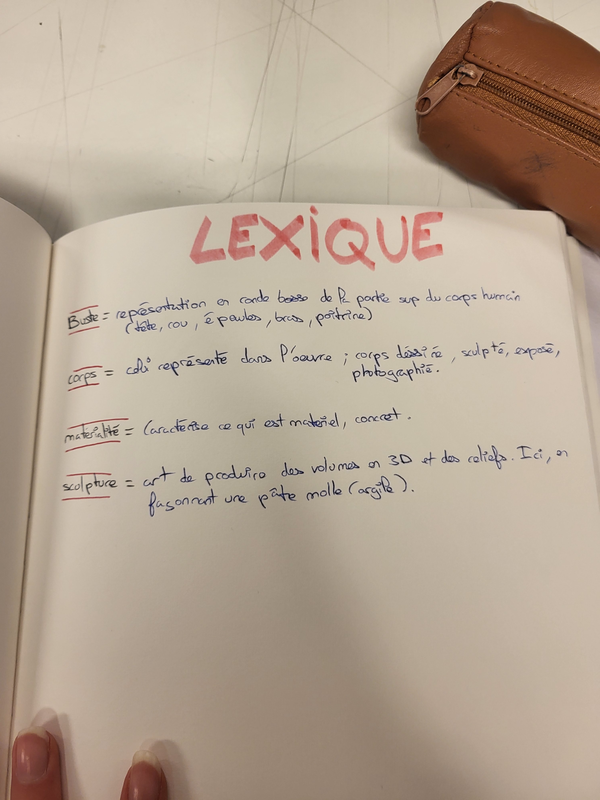 LEXIQUE
Buste = représentation en ronde bosse de la partie sup du corps humain
(tête, cou, épaules, bras, poitrine)
corps = celui représenté dans l'oeuvre ; corps dessiné, sculpté, exposé,
photographié.
matérialité = Caractérise ce qui est matériel, concret.
sculpture = art de produire des volumes en 3D et des reliefs. Ici, en
façonnant une pâte molle (argile).